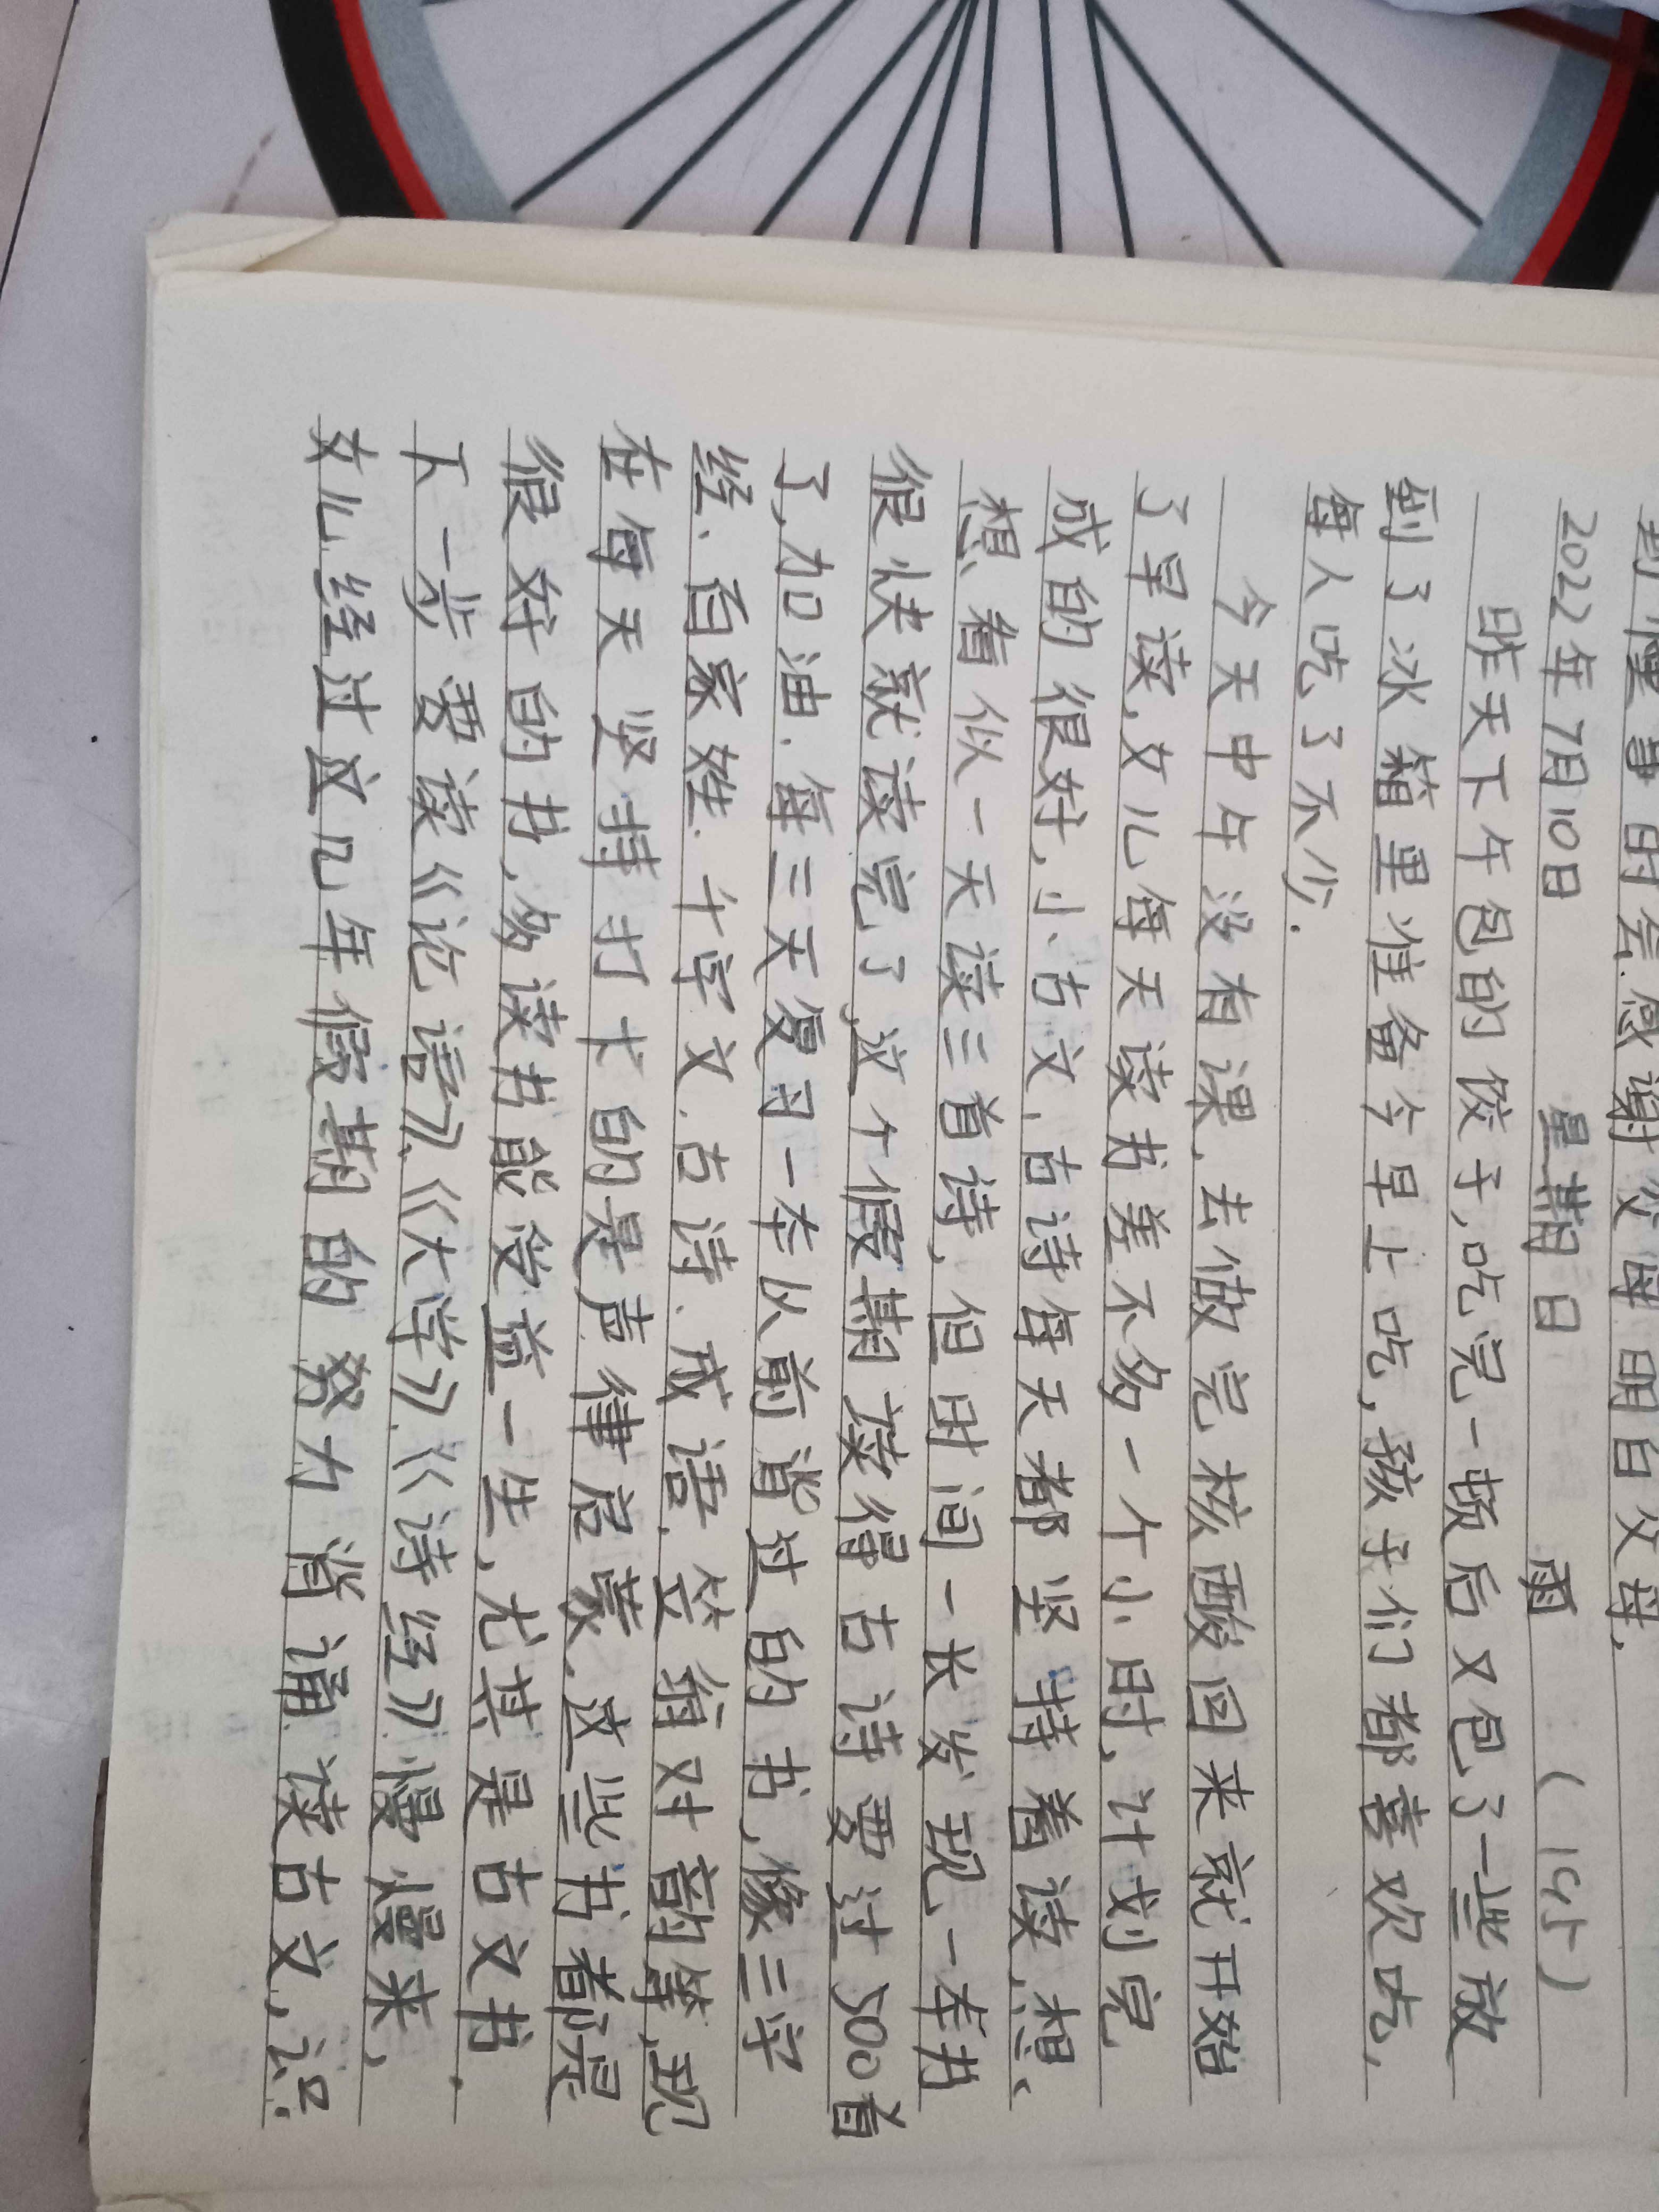 到懂事时会感谢父母明白父母.
2022年7月10日 星期日 雨 (1G小)
昨天下午包的饺子,吃完一顿后又包了一些放
到了冰箱里准备今早上吃,孩子们都喜欢吃,
每人吃了不少.
今天中午没有课,去做完核酸回来就开始
了早读,女儿每天读书差不多一个小时,计划完
成的很好,小古文,古诗每天都坚持着读,想、
想看似一天读三首诗,但时间一长发现一本书
很快就读完了,这个假期读得古诗要过500首
了,加油.每三天复习一本从前背过的书,像三字
经、百家姓.千字文.古诗.成语.笠翁对韵等,现
在每天坚持打卡的是声律启蒙.这些书都是
很好的书,多读书能受益一生,尤其是古文书.
下一步要读《论语》《大学》《诗经》慢慢来,
女儿经过这几年假期的努力背诵读古文,识